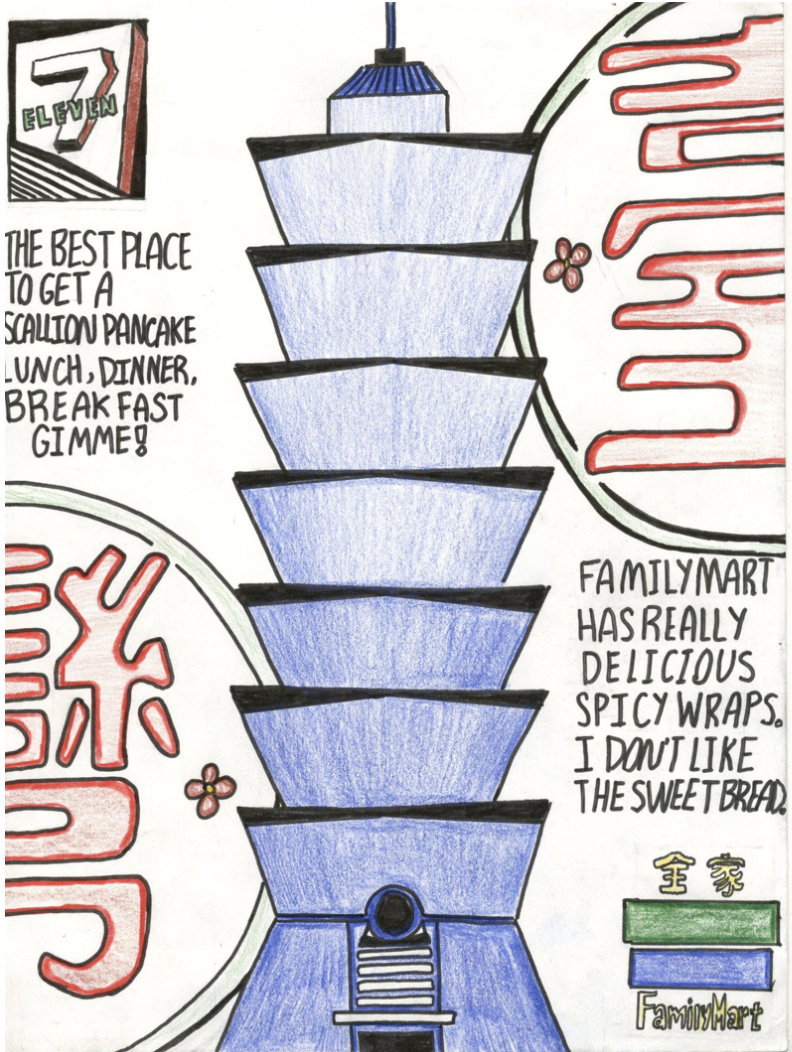 7
ELEVEN
THE BEST PLACE
TO GET A
SCALLION PANCAKE
LUNCH, DINNER,
BREAKFAST
GIMME!
FAMILYMART
HAS REALLY
DELICIOUS
SPICY WRAPS.
I DON'T LIKE
THE SWEET BREAD.
全家
FamilyMart